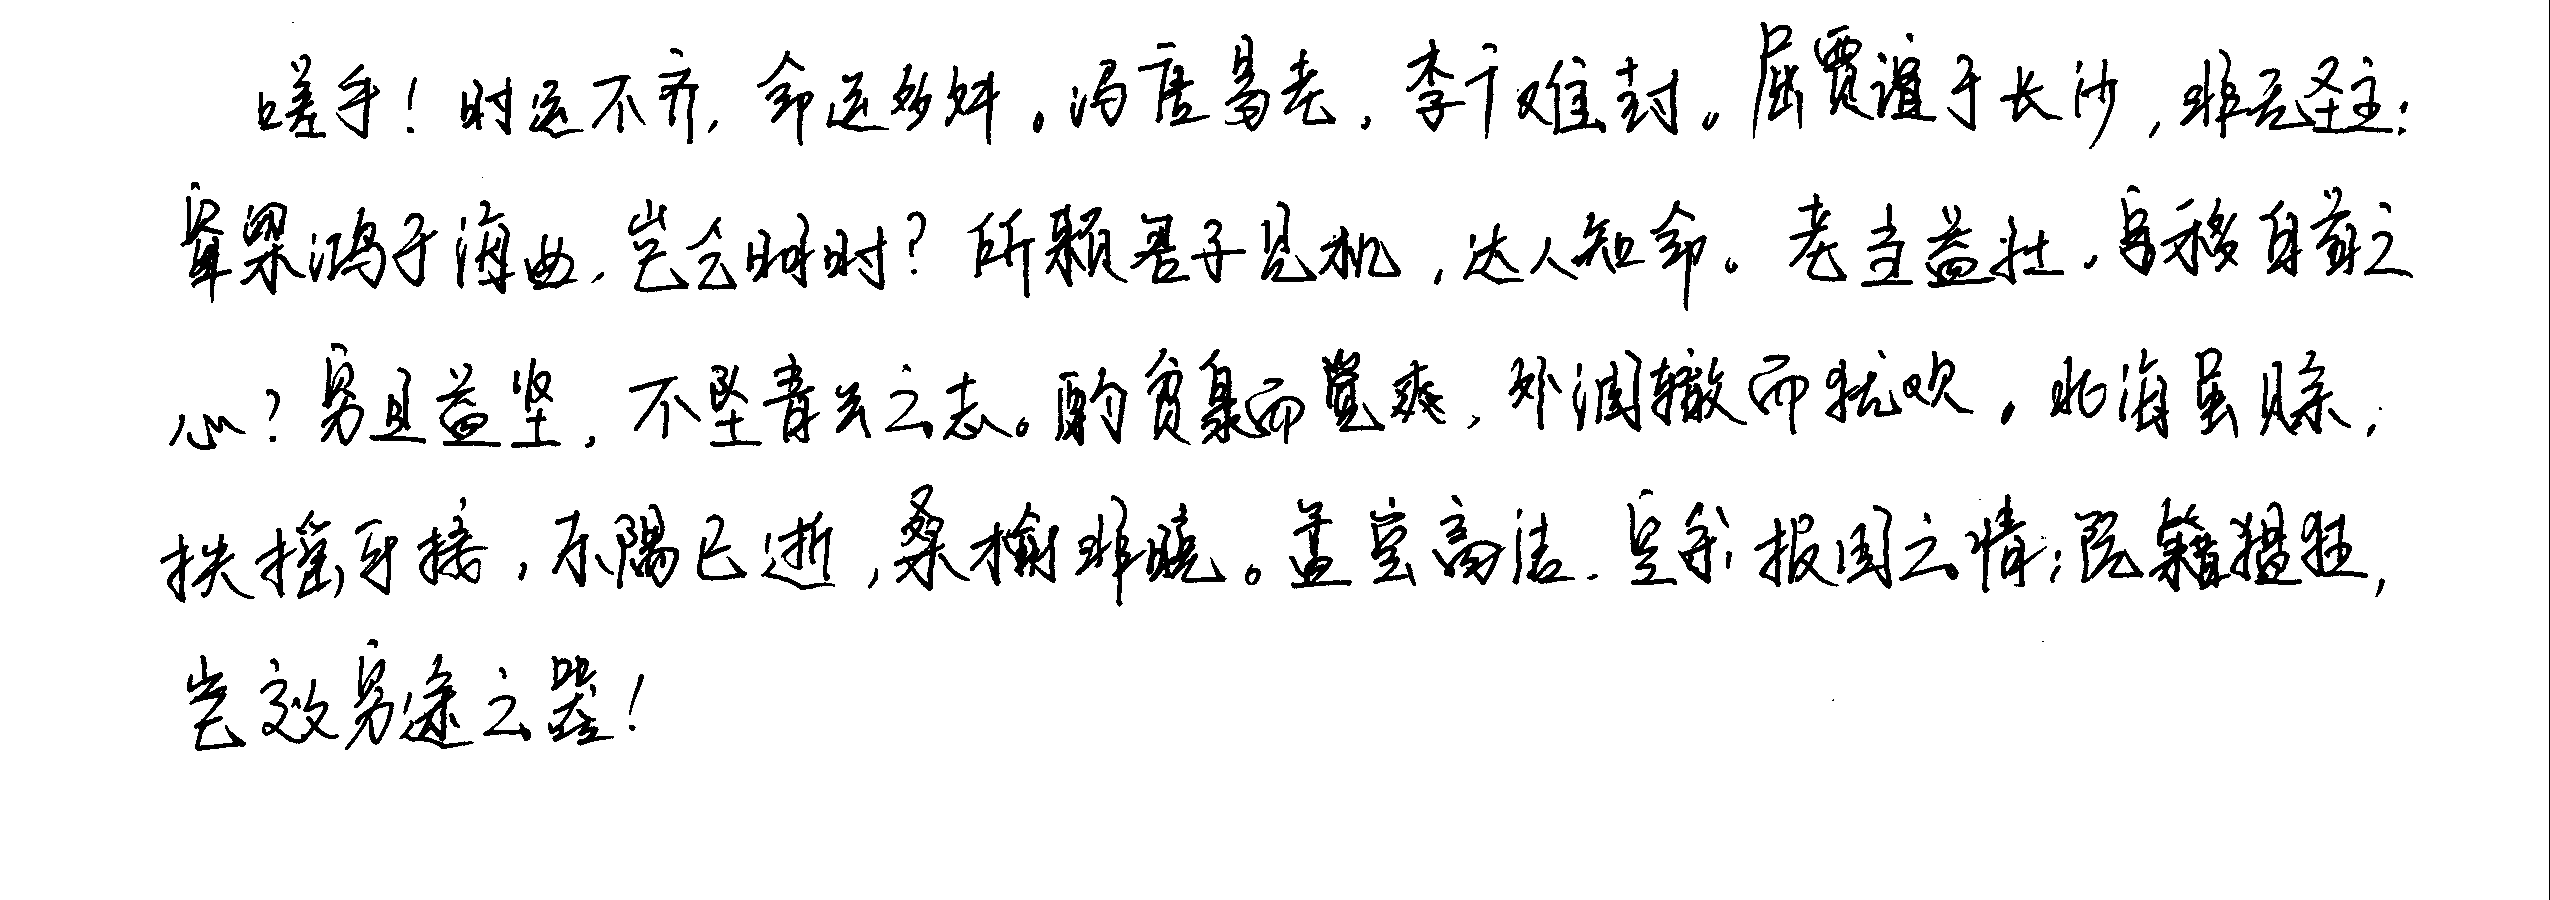 嗟乎！时运不齐，命运多舛。冯唐易老，李广难封。屈贾谊于长沙，非无圣主；
窜梁鸿于海曲，岂乏明时？所赖君子见机，达人知命。老当益壮，宁移白首之
心？穷且益坚，不坠青云之志。酌贪泉而觉爽，处涸辙而犹欢。北海虽赊，
扶摇可接，东隅已逝，桑榆非晚。孟尝高洁，空余报国之情；阮籍猖狂，
岂效穷途之哭！